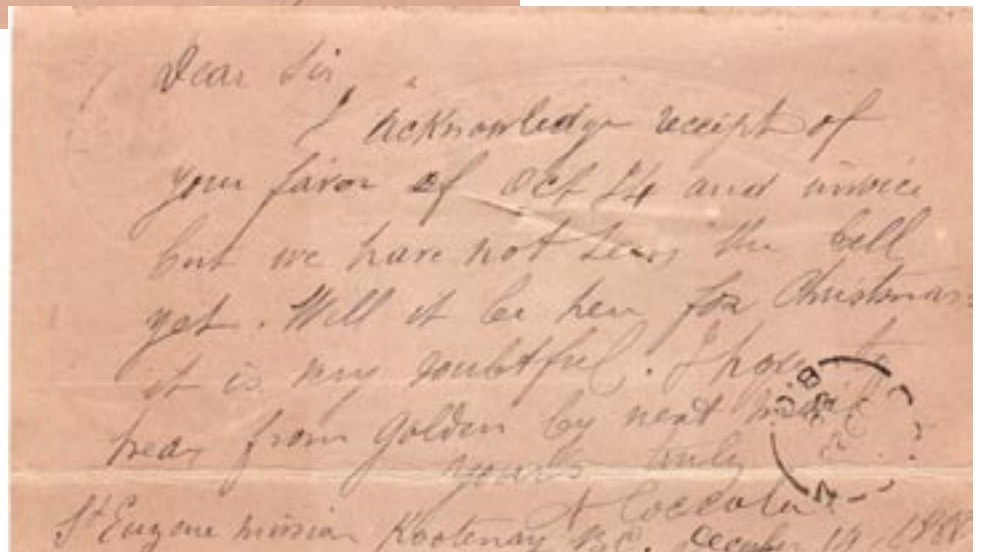 Dear Sir,
I acknowledge receipt of
your favor of Oct 24 and invoice
but we have not seen the bell
yet. Will it be here for Christmas
it is very doubtful. I hope to
hear from Golden by next mail
yours truly
N Coccola
St Eugene mission Kootenay B.C. December 14, 1888
B.C.